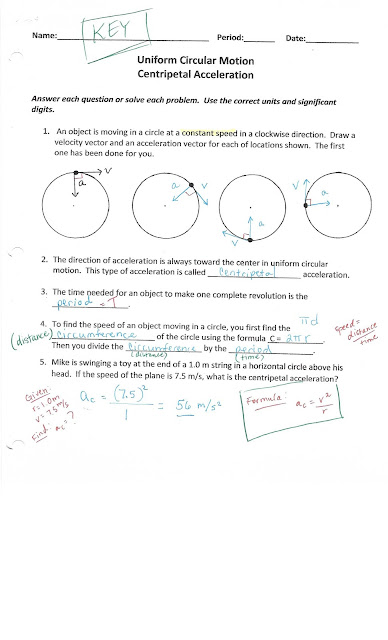 Name: KEY Period: Date:
Uniform Circular Motion
Centripetal Acceleration
Answer each question or solve each problem. Use the correct units and significant
digits.
1. An object is moving in a circle at a constant speed in a clockwise direction. Draw a
velocity vector and an acceleration vector for each of locations shown. The first
one has been done for you.
v a
a v
v a
v a
2. The direction of acceleration is always toward the center in uniform circular
motion. This type of acceleration is called centripetal acceleration.
3. The time needed for an object to make one complete revolution is the
period = T.
πd
4. To find the speed of an object moving in a circle, you first find the
(distance) circumference of the circle using the formula C = 2πr.
Then you divide the circumference by the period.
(distance) (time)
speed = distance
time
5. Mike is swinging a toy at the end of a 1.0 m string in a horizontal circle above his
head. If the speed of the plane is 7.5 m/s, what is the centripetal acceleration?
Given:
r = 1.0m
v = 7.5 m/s
Find: ac = ?
ac = (7.5)² = 56 m/s²
1
Formula: ac = v²
r